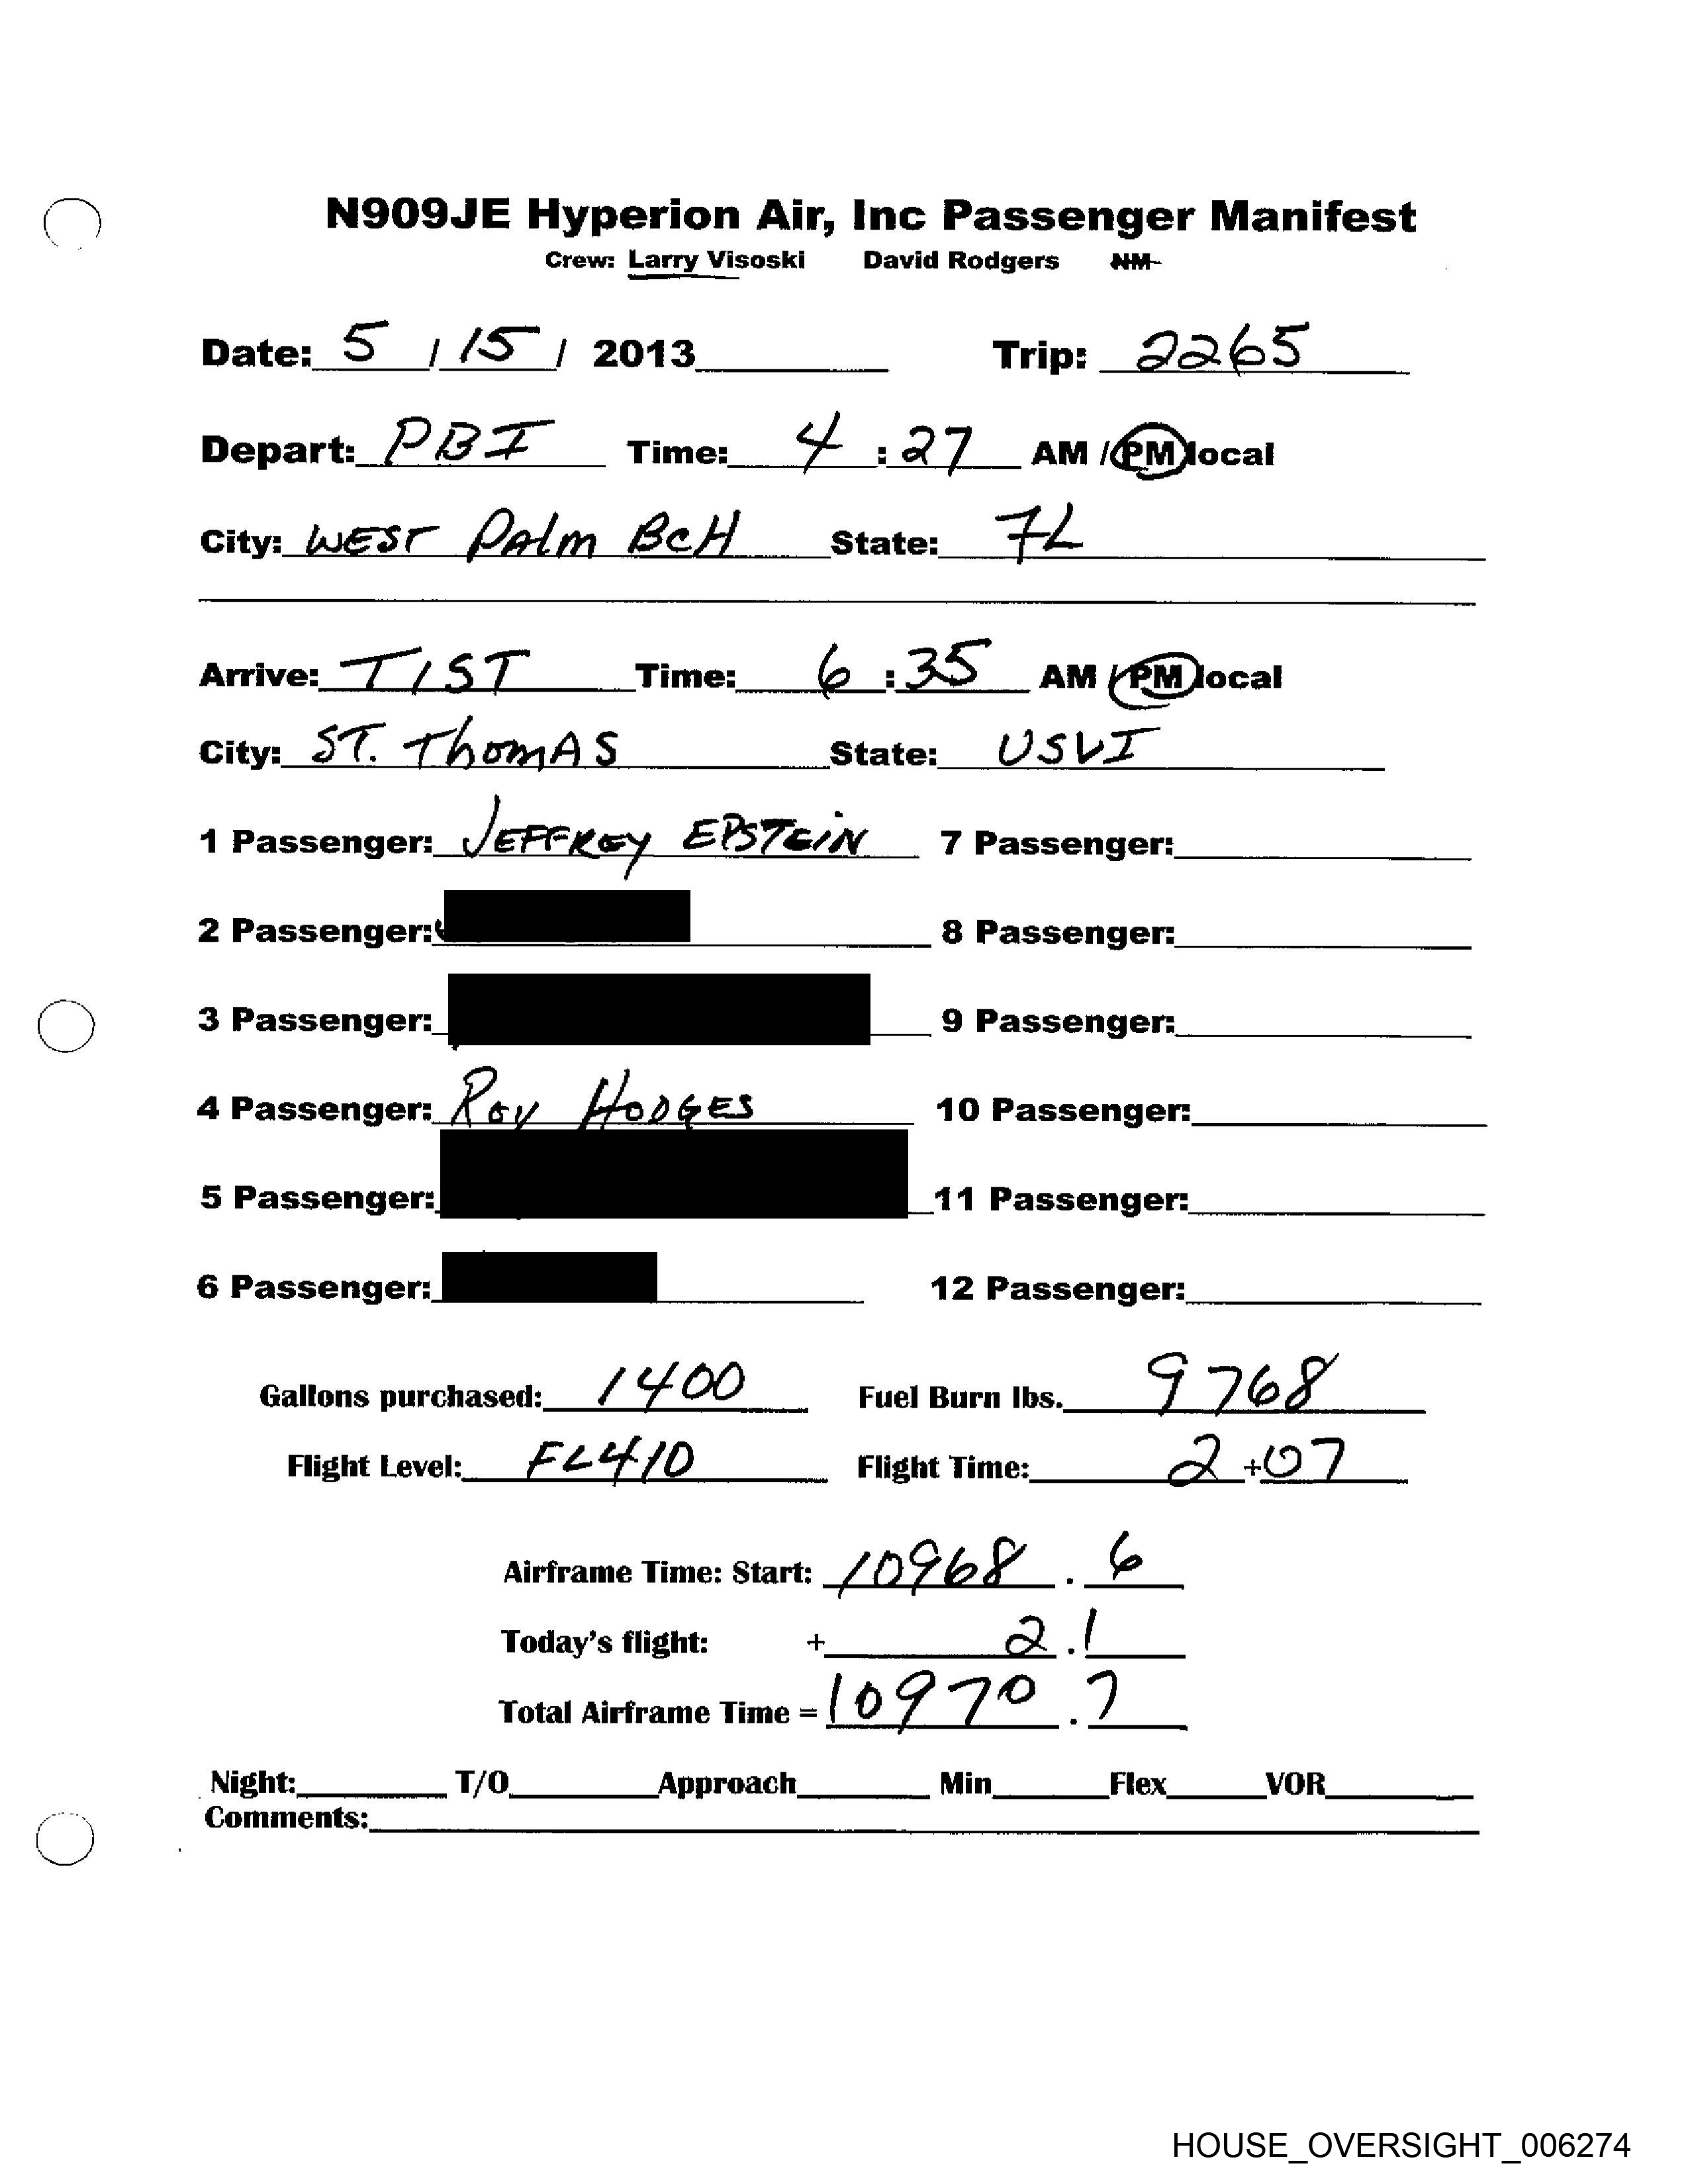 N909JE Hyperion Air, Inc Passenger Manifest
Crew: Larry Visoski David Rodgers NM
Date: 5 / 15 / 2013 Trip: 2265
Depart: PBI Time: 4 : 27 AM / PM local
City: WEST PAlm BcH State: FL
Arrive: TIST Time: 6 : 35 AM / PM local
City: ST. ThomAS State: USVI
1 Passenger: JEFFREY EPSTEIN 7 Passenger:
2 Passenger: 8 Passenger:
3 Passenger: 9 Passenger:
4 Passenger: Roy HODGES 10 Passenger:
5 Passenger: 11 Passenger:
6 Passenger: 12 Passenger:
Gallons purchased: 1400 Fuel Burn lbs. 9768
Flight Level: FL410 Flight Time: 2 + 07
Airframe Time: Start: 10968 . 6
Today's flight: + 2 . 1
Total Airframe Time = 10970 . 7
Night: T/O Approach Min Flex VOR
Comments:
HOUSE_OVERSIGHT_006274